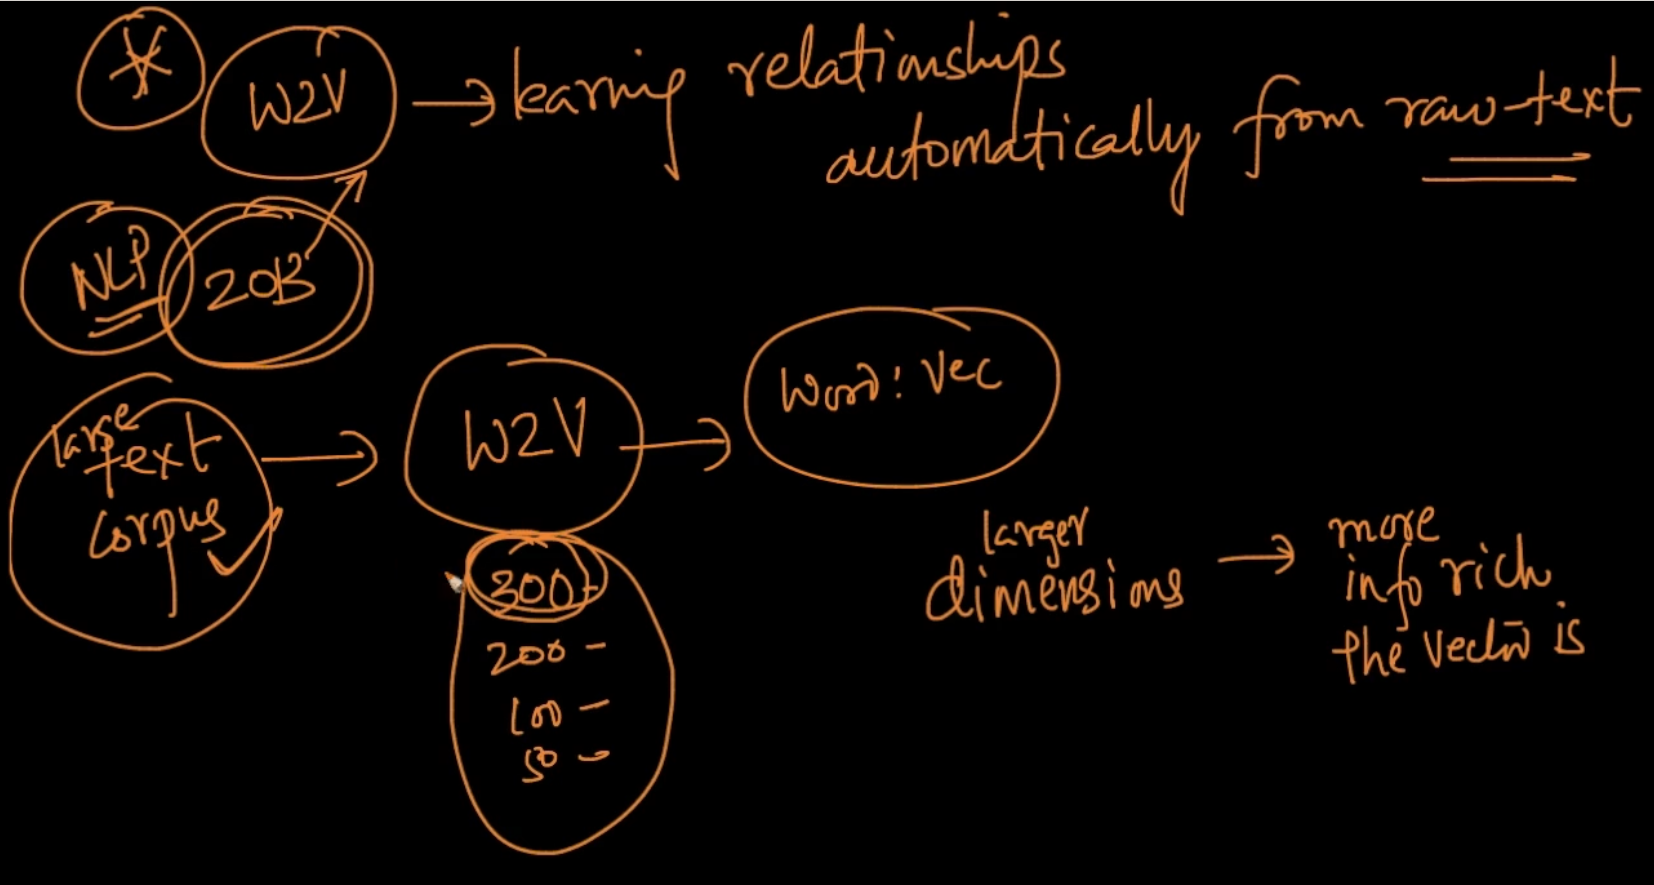 W2V → learning relationships
automatically from raw text
NLP 2013
large
text
corpus
→ W2V → Word: Vec
300 -
200 -
100 -
50 -
larger
dimensions
→ more
info rich
the vector is